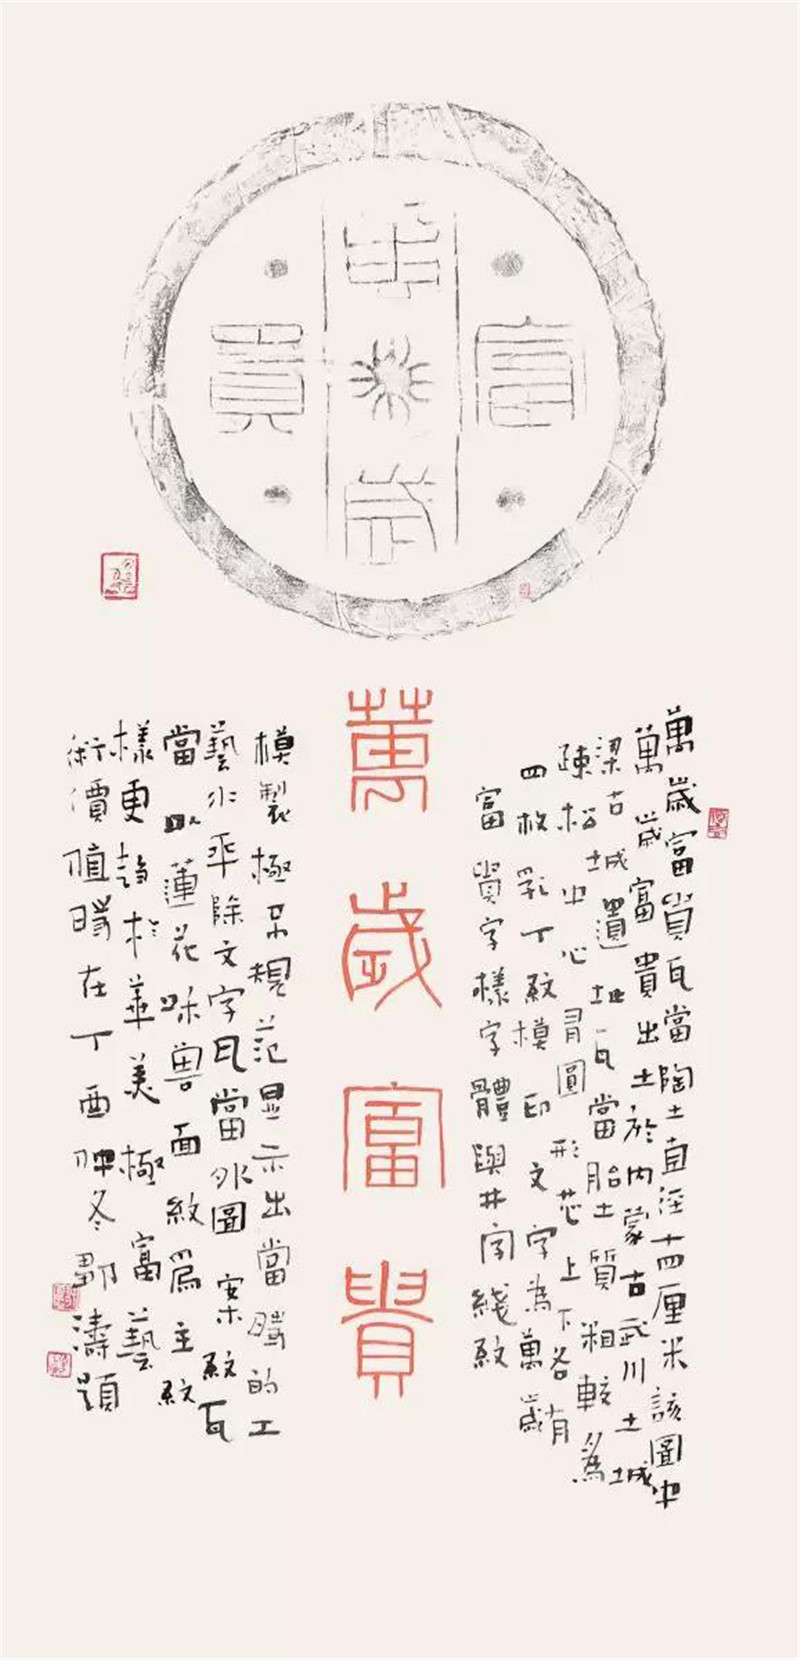 萬
富
貴
歲
萬歲富貴瓦當陶土直徑十四厘米該圖中
萬歲富貴出土於內蒙古武川土城
梁古城遺址瓦當胎土質相較為
疎松中心有圓形芯上下各有
四枚乳丁紋模印文字為萬歲
富貴字樣字體與井字綫紋
萬歲富貴
模製極亓規范显示出當時的工
藝水平除文字瓦當外圖案紋瓦
當以蓮花咊兽面紋為主紋
樣更趋於華美極富藝
術價值時在丁酉仲冬鄒濤題